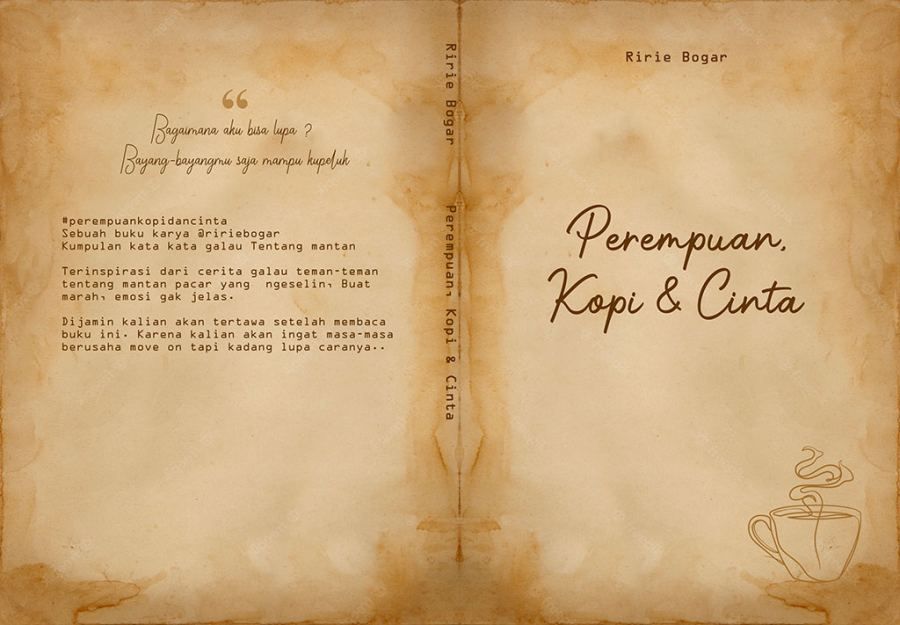 Bagaimana aku bisa lupa ?
Bayang-bayangmu saja mampu kupeluk
#perempuankopidancinta
Sebuah buku karya @ririebogar
Kumpulan kata kata galau Tentang mantan
Terinspirasi dari cerita galau teman-teman
tentang mantan pacar yang ngeselin, Buat
marah, emosi gak jelas.
Dijamin kalian akan tertawa setelah membaca
buku ini. Karena kalian akan ingat masa-masa
berusaha move on tapi kadang lupa caranya..
Ririe Bogar
Perempuan, Kopi & Cinta
Ririe Bogar
Perempuan,
Kopi & Cinta